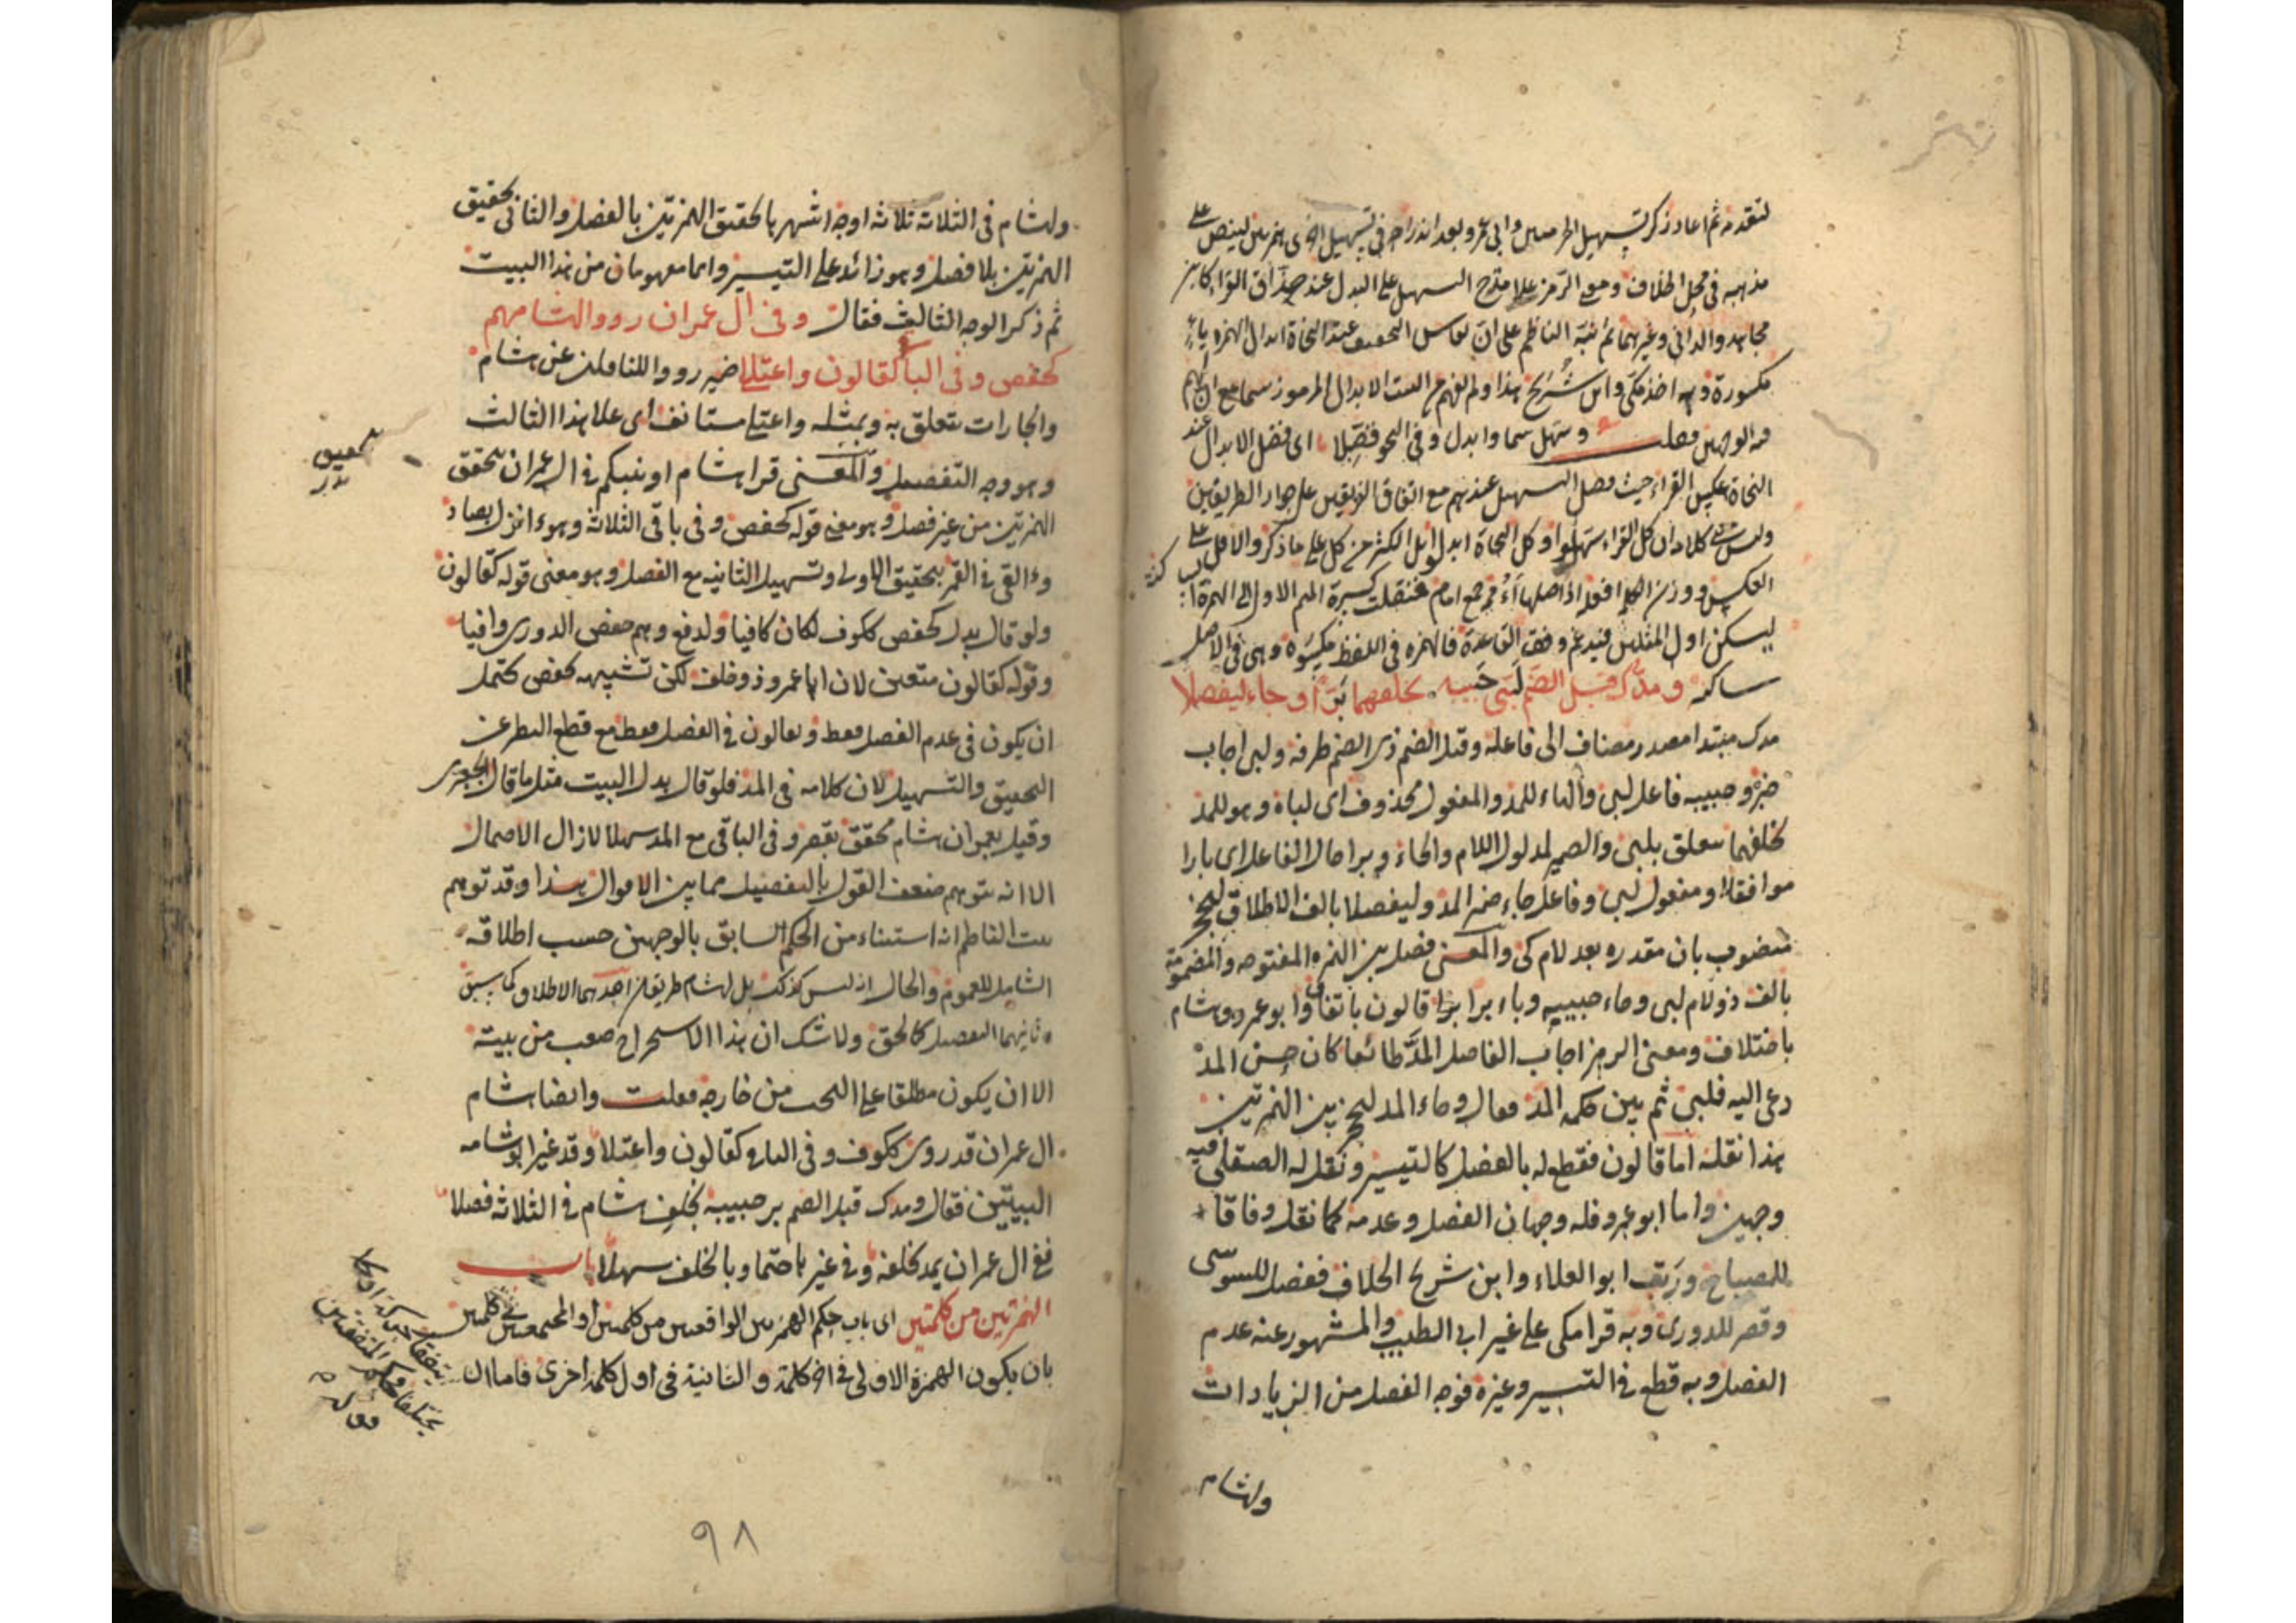 لتقدمه ثم اعاد ذكر تسهيل الحرميين وابى عمرو بعد اندراجه فى تسهيل اخرى همزتين لينص على
مذهبه فى محل الخلاف وصح الرمز على مدح التسهيل على البدل عند حذاق القراء كابن
مجاهد والدانى وغيرهما ثم نبّه الناظم على ان التخفيف عند النحاة ابدال الهمزة ياء
مكسورة وبه اخذ مكى وابن شريح هذا ولم يفهم من البيت الابدال المرموز سما مع ان لهم
الوجهين قلت وسهل سما وابدل وفى النحو فضّلا اى فضل الابدال عند
النحاة بعكس القراء حيث فضل التسهيل عندهم مع اتفاق الفريقين على جواز الطريقين
وليس كلام ان كل القراء سهلوا وكل النحاة ابدلوا بل اكثر من كل على ما ذكر والاقل على
العكس ووزن افعلة اذ اصلها جمع امام فنقلت كسرة الميم الاولى الى الهمزة
ليسكن اول المثلين فيدغم وفق القاعدة فالهمزة فى اللفظ مكسورة وهى فى الاصل
ساكنة ومدّك قبل الضم لبّى حبيبه بخلفهما برّا وجاء ليفصلا
مدك مبتدا مصدر مضاف الى فاعله وقبل الضم ذى الضم ظرفه ولبى اجاب
خبره وحبيبه فاعل لبى والهاء للمد والمفعول محذوف اى لباه وهو للمد
بخلفهما متعلق بلبى والضمير لمدلول اللام والحاء وبرا حال الفاعل اى بارا
موافقا او مفعول لبى وفاعل جاء ضمير المد وليفصلا بالف الاطلاق ليحجز
منصوب بان مقدرة بعد لام كى والمعنى فصل بين الهمزة المفتوحة والمضمومة
بالف ذو لام لبى وحاء حبيبه وباء برا برا قالون باتفاق وابو عمرو وهشام
باختلاف ومعنى الرمز اجاب الفاصل المد طائعا كان حسن المد
دعى اليه فلبى ثم بين حكمة المد فقال وجاء المد ليحجز بين الهمزتين
هذا نقله اما قالون فقطع له بالفصل كالتيسير ونقل له الصقلى فيه
وجهين واما ابو عمرو فله وجهان الفصل وعدمه كما نقل وفاقا
للمصباح ابو العلاء وابن شريح الخلاف ففصل للسوسى
وقصر للدورى وبه قرا مكى على غير ابى الطيب والمشهور عنه عدم
الفصل وبه قطع فى التيسير وغيره فوجه الفصل من الزيادات
ولهشام
ولهشام فى الثلاثة ثلاثة اوجه اشهرها تحقيق الهمزتين بالفصل والثانى تحقيق
الهمزتين بلا فصل وهو زائد على التيسير وانما مفهومان من هذا البيت
ثم ذكر الوجه الثالث فقال وفى ال عمران رووا لهشامهم
كحفص وفى الباقى كقالون واعتلى ضمير رووا للناقلين عن هشام
والجارات تتعلق به وبمثله واعتلى مستانف اى علا هذا الثالث
وهو وجه التفصيل والمعنى قرا هشام اونبئكم فى ال عمران بتحقق
الهمزتين من غير فصل وهو معنى قوله كحفص وفى باقى الثلاثة وهو ءانزل بصاد
وءالقى فى القمر بتحقيق الاولى وتسهيل الثانية مع الفصل وهو معنى قوله كقالون
ولو قال بدل كحفص ككوف لكان كافيا ولدفع وهم حفص الدورى وافيا
وقوله كقالون متعين لان ابا عمرو ذو خلف لكن تشبيهه كحفص يحتمل
ان يكون فى عدم الفصل فقط وبقالون فى الفصل فقط مع قطع النظر عن
التحقيق والتسهيل لان كلامه فى المد فلو قال بدل البيت مثل ما قال الجعبرى
وقيل بعمران هشام محقق بقصر وفى الباقى مع المد سهلا لازال الاحتمال
الا انه يتوهم ضعف القول بالتفصيل مما بين الاقوال هذا وقد توهم
بيت الناظم انه استثناء من الحكم السابق بالوجهين حسب اطلاقه
الشامل للعموم والحال انه ليس كذلك بل لهشام طريقان احدهما الاطلاق كما سبق
وثانيهما التفصيل كالحق ولا شك ان هذا الاستخراج صعب من بيته
الا ان يكون مطلقا على البحث من خارجه فقلت وايضا هشام
ال عمران قد روى ككوف وفى الباق كقالون واعتلا وقد غير ابو شامه
البيتين فقال ومدك قبل الضم بر حبيبه بخلف هشام فى الثلاثة فصلا
ففى ال عمران يمد بخلفه وفى غيرها حتما وبالخلف سهلا باب
الهمزتين من كلمتين اى باب حكم الهمزتين الواقعتين من كلمتين او المجتمعتين فى كلمتين
بان يكون الهمزة الاولى فى اخر كلمة والثانية فى اول كلمة اخرى فاما ان
بتحقيق
يتفقا حركة او
يختلفا وحكم المتفقتين
قوله
٩٨